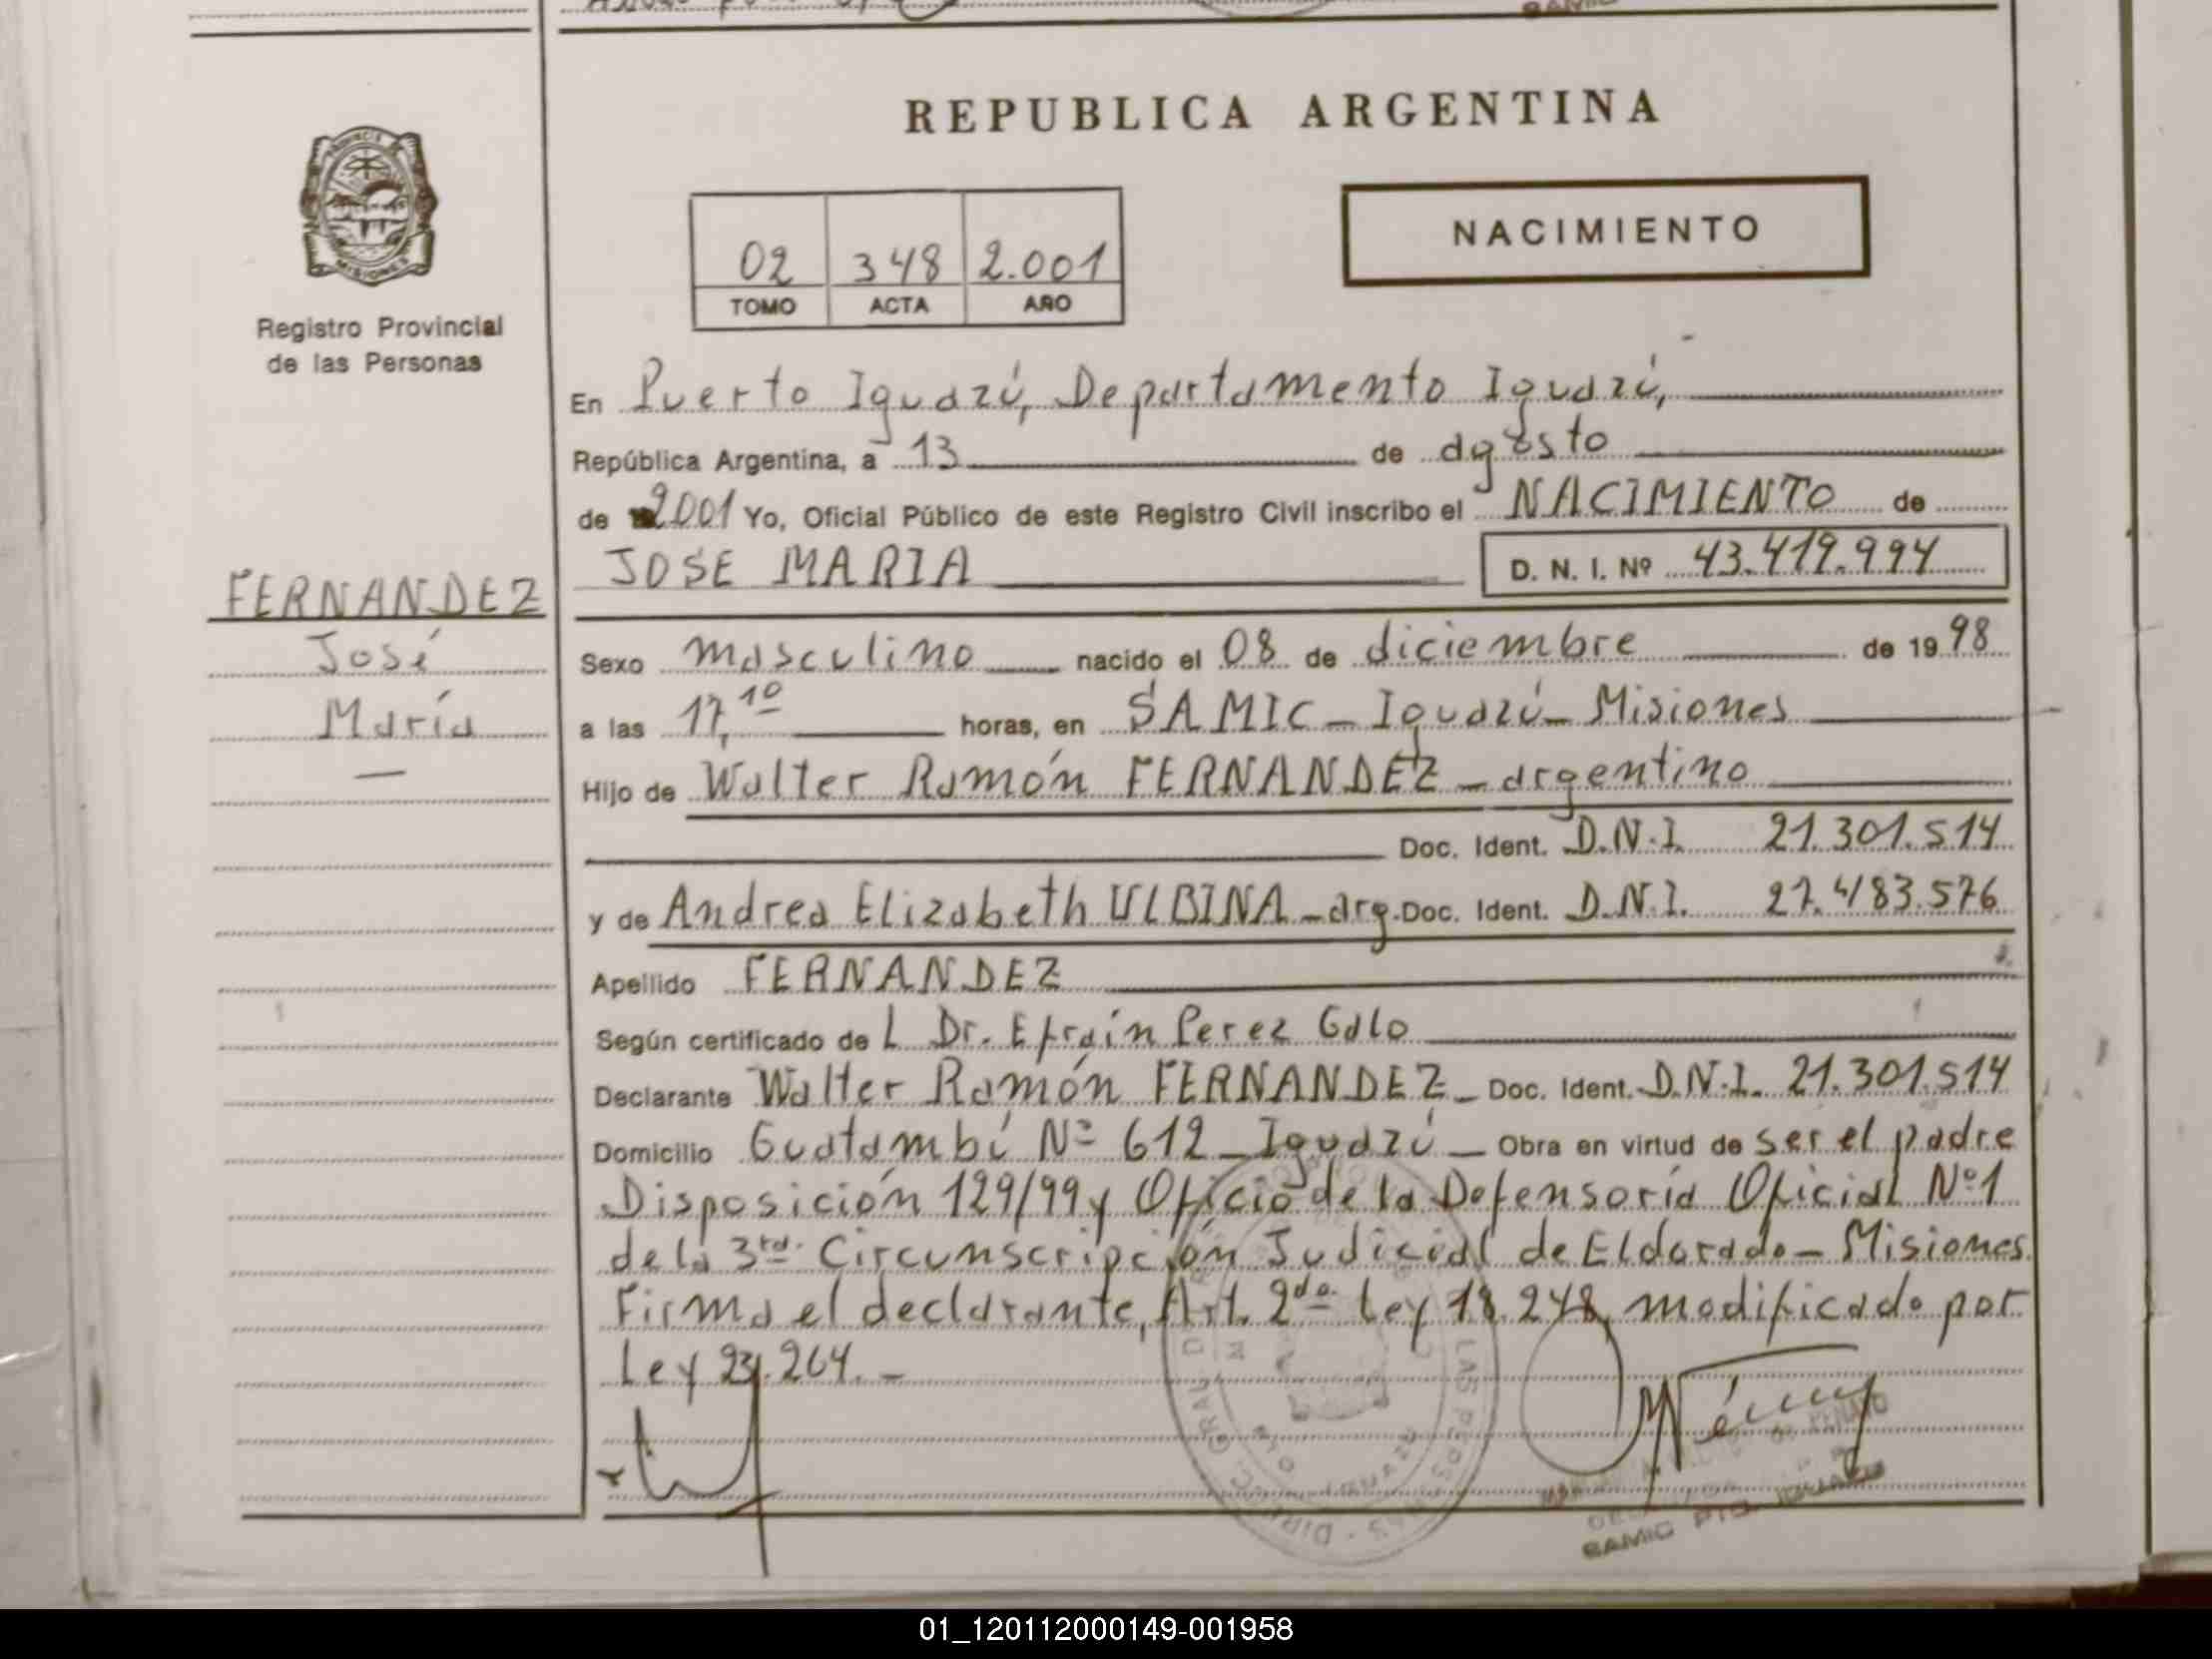 REPUBLICA ARGENTINA
NACIMIENTO
02 348 2.001
TOMO ACTA AÑO
PROVINCIA DE
MISIONES
Registro Provincial
de las Personas
FERNANDEZ
José
María
En Puerto Iguazú, Departamento Iguazú,
República Argentina, a 13 de agosto
de 2001 Yo, Oficial Público de este Registro Civil inscribo el NACIMIENTO de
JOSE MARIA D. N. I. Nº 43.419.994
Sexo masculino nacido el 08 de diciembre de 1998
a las 17,10 horas, en SAMIC - Iguazú - Misiones
Hijo de Walter Ramón FERNANDEZ - argentino
Doc. Ident. D.N.I. 21.301.514
y de Andrea Elizabeth ULBINA - arg. Doc. Ident. D.N.I. 27.483.576
Apellido FERNANDEZ
Según certificado de L Dr. Efraín Perez Galo
Declarante Walter Ramón FERNANDEZ - Doc. Ident. D.N.I. 21.301.514
Domicilio Guatambú Nº 612 - Iguazú - Obra en virtud de ser el padre
Disposición 129/99 y Oficio de la Defensoría Oficial Nº1
de la 3ra. Circunscripción Judicial de Eldorado - Misiones.
Firma el declarante, Art. 2do. Ley 18.248, modificado por
Ley 23.264. -
SAMIC PTO. IGUAZU
01_120112000149-001958